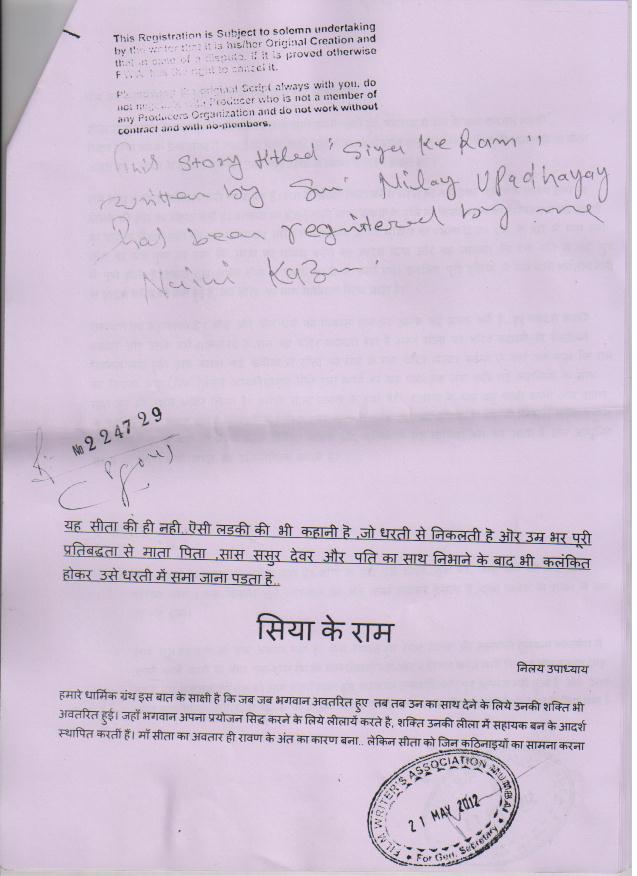 This Registration is Subject to solemn undertaking
by the writer that it is his/her Original Creation and
that in case of a dispute, if it is proved otherwise
F.W.A. has the right to cancel it.
the original Script always with you, do
not Producer who is not a member of
any Producers Organization and do not work without
contract and with no-members.
This story titled "Siya Ke Ram"
written by Shri Nilay Upadhayay
has been registered by me
Naini
No 224729
यह सीता की ही नही..ऎसी लडकी की भी कहानी है ,जो धरती से निकलती है ऒर उम्र भर पूरी
प्रतिबद्धता से माता पिता ,सास ससुर देवर और पति का साथ निभाने के बाद भी कलंकित
होकर उसे धरती में समा जाना पडता है..
सिया के राम
निलय उपाध्याय
हमारे धार्मिक ग्रंथ इस बात के साक्षी है कि जब जब भगवान अवतरित हुए तब तब उन का साथ देने के लिये उनकी शक्ति भी
अवतरित हुई। जहाँ भगवान अपना प्रयोजन सिद्ध करने के लिये लीलायें करते है, शक्ति उनकी लीला में सहायक बन के आदर्श
स्थापित करती हैं। माँ सीता का अवतार ही रावण के अंत का कारण बना.. लेकिन सीता को जिन कठिनाइयों का सामना करना
FILM WRITER'S ASSOCIATION MUMBAI
21 MAY 2012
For Gen. Secretary